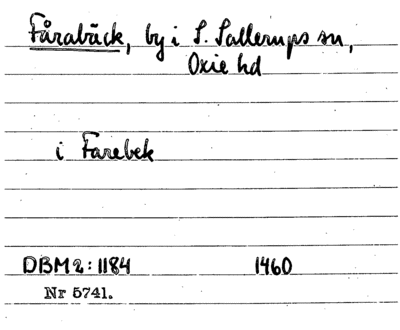 Fårabäck, by i S. Sallerups sn,
Oxie hd
i Farebek
DBM2:1184 1460
Nr 5741.